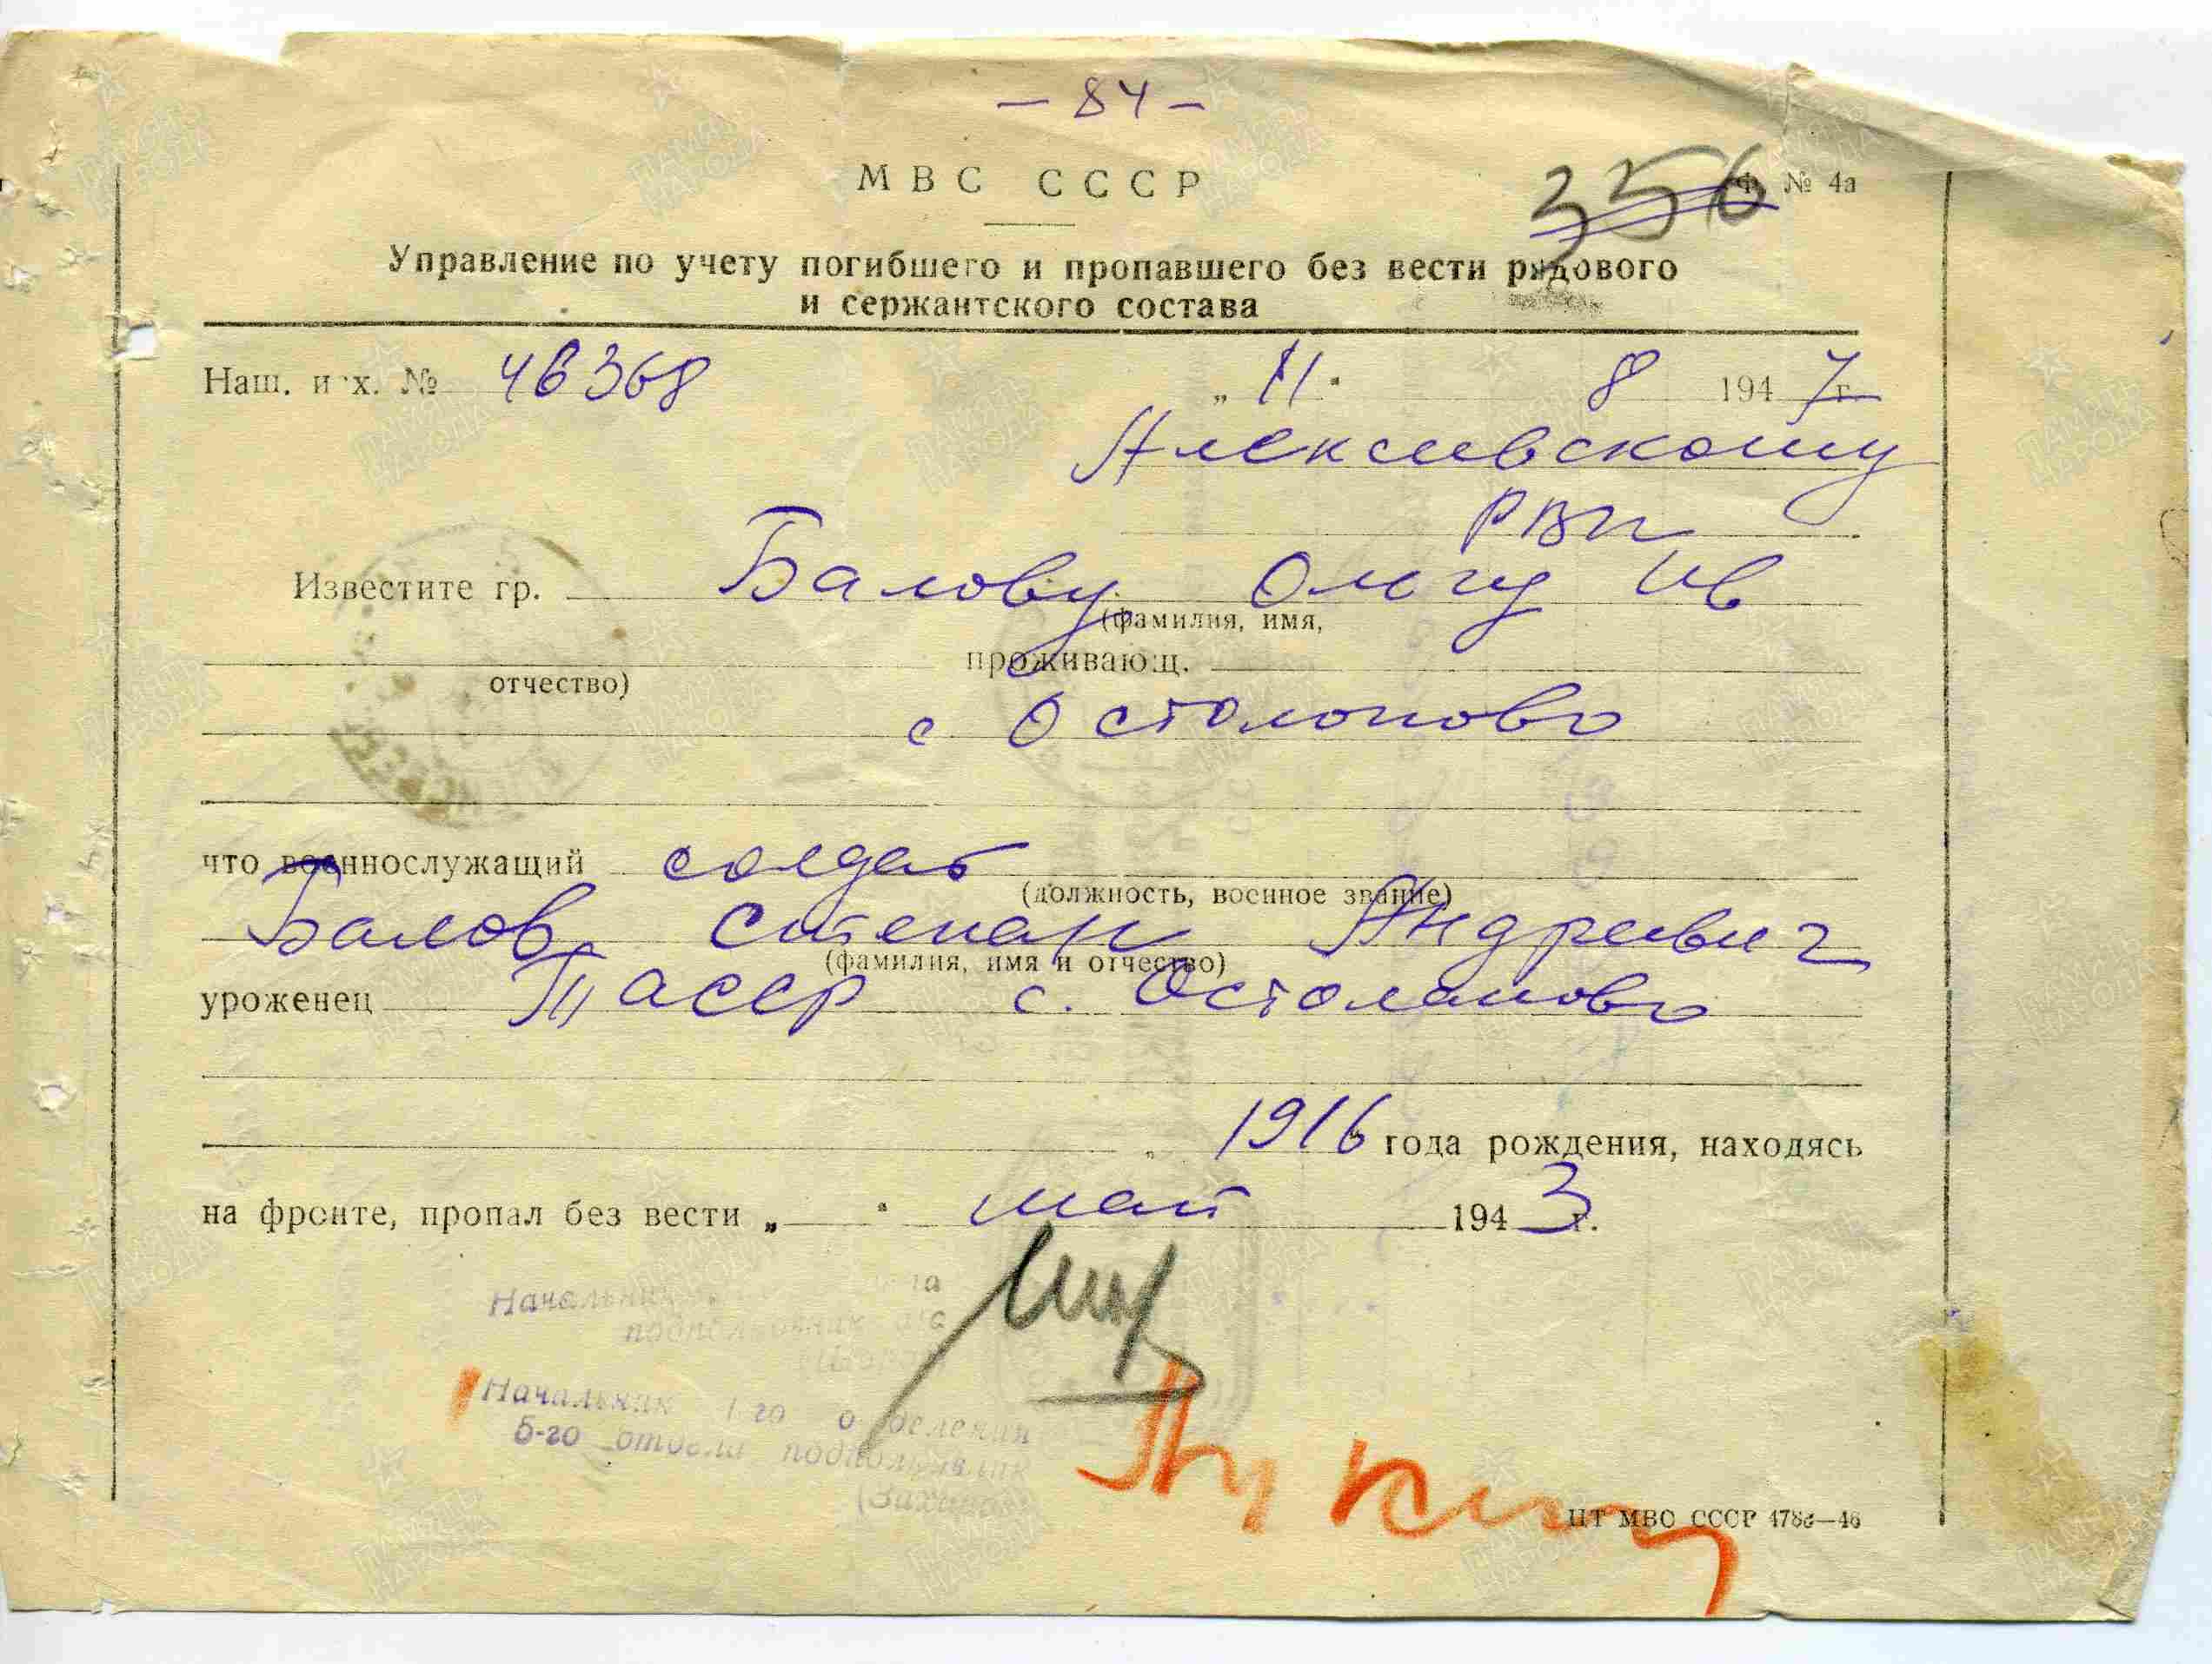 — 84 —
МВС СССР
356
Ф. № 4а
Управление по учету погибшего и пропавшего без вести рядового
и сержантского состава
Наш. исх. № 4в368 „11“ 8 1947г
Алексеевскому
РВК
Известите гр. Балову Ольгу Ив
(фамилия, имя,
проживающ.
отчество)
с Остолопово
что военнослужащий солдат
(должность, военное звание)
Балов Степан Андреевич
(фамилия, имя и отчество)
уроженец ТАССР с. Остолопово
1916 года рождения, находясь
на фронте, пропал без вести „ “ май 1943 г.
Начальник
подполковник
Начальник 1-го отделения
5-го отдела подполковник
ЦТ МВС СССР